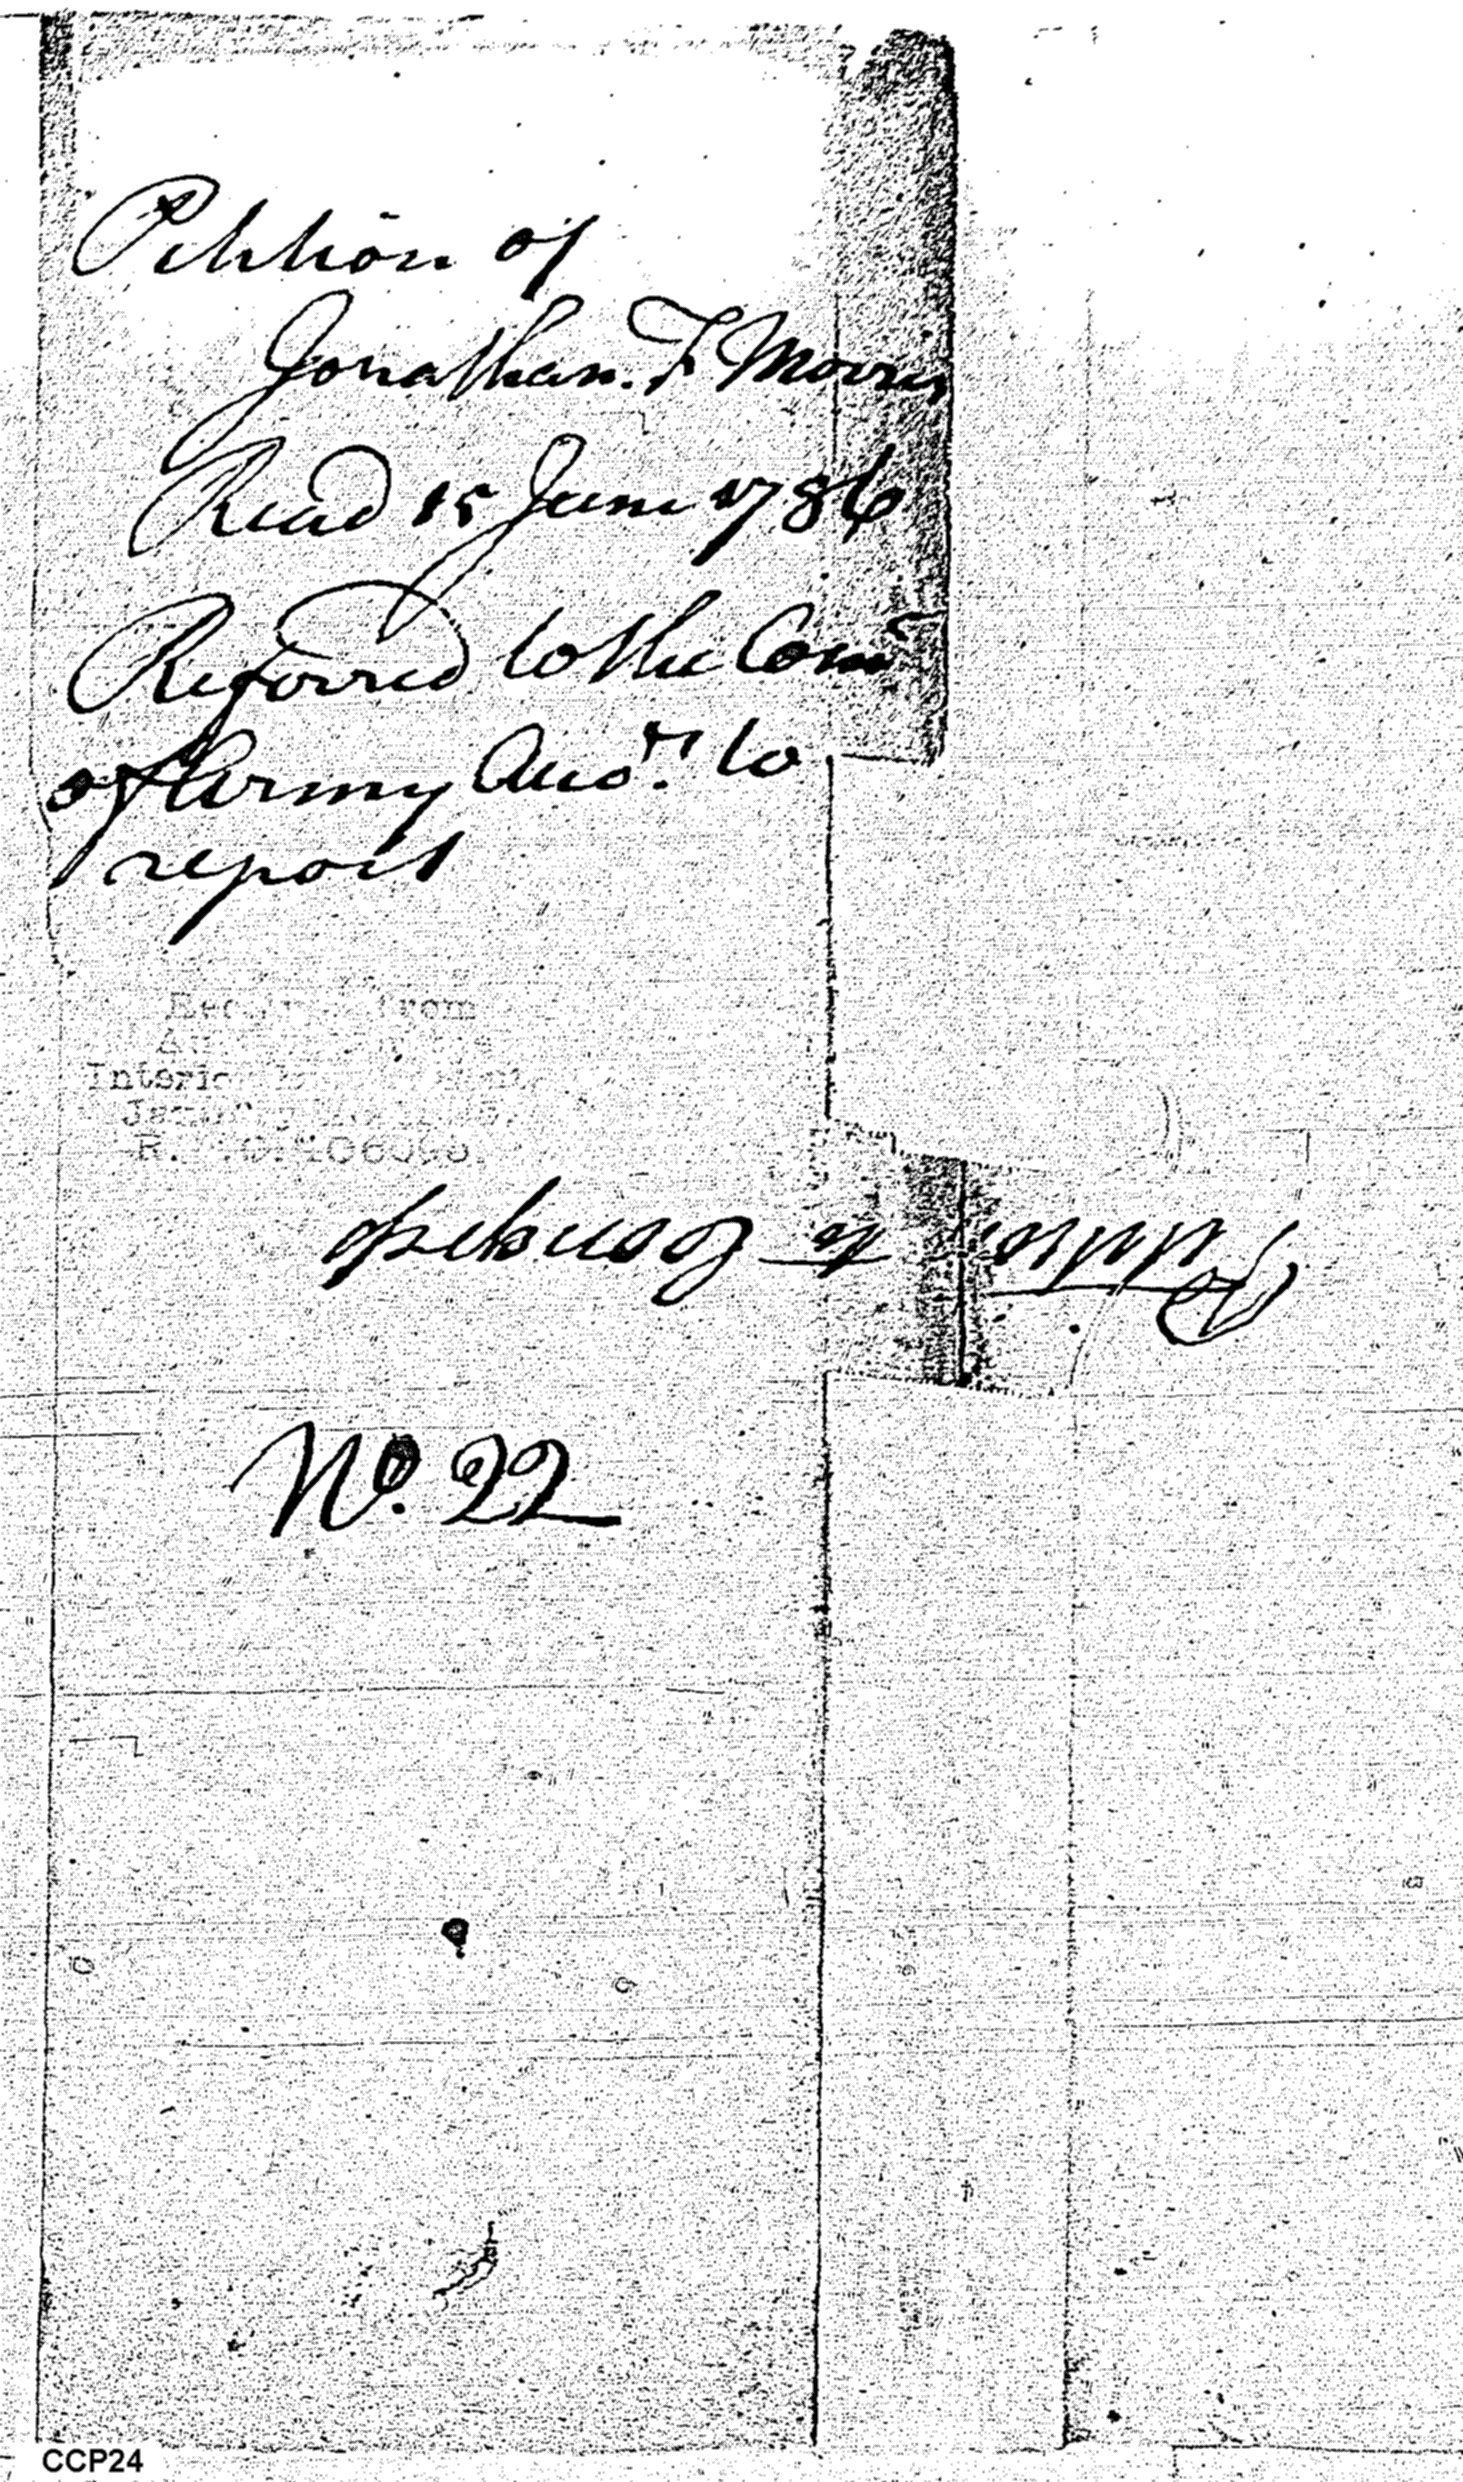 Petition of
Jonathan. F Morris
Read 15 June 1786
Referred to the Comr
of Army Accts. to
report
from
R.
Petition to Congress
No. 22
CCP24